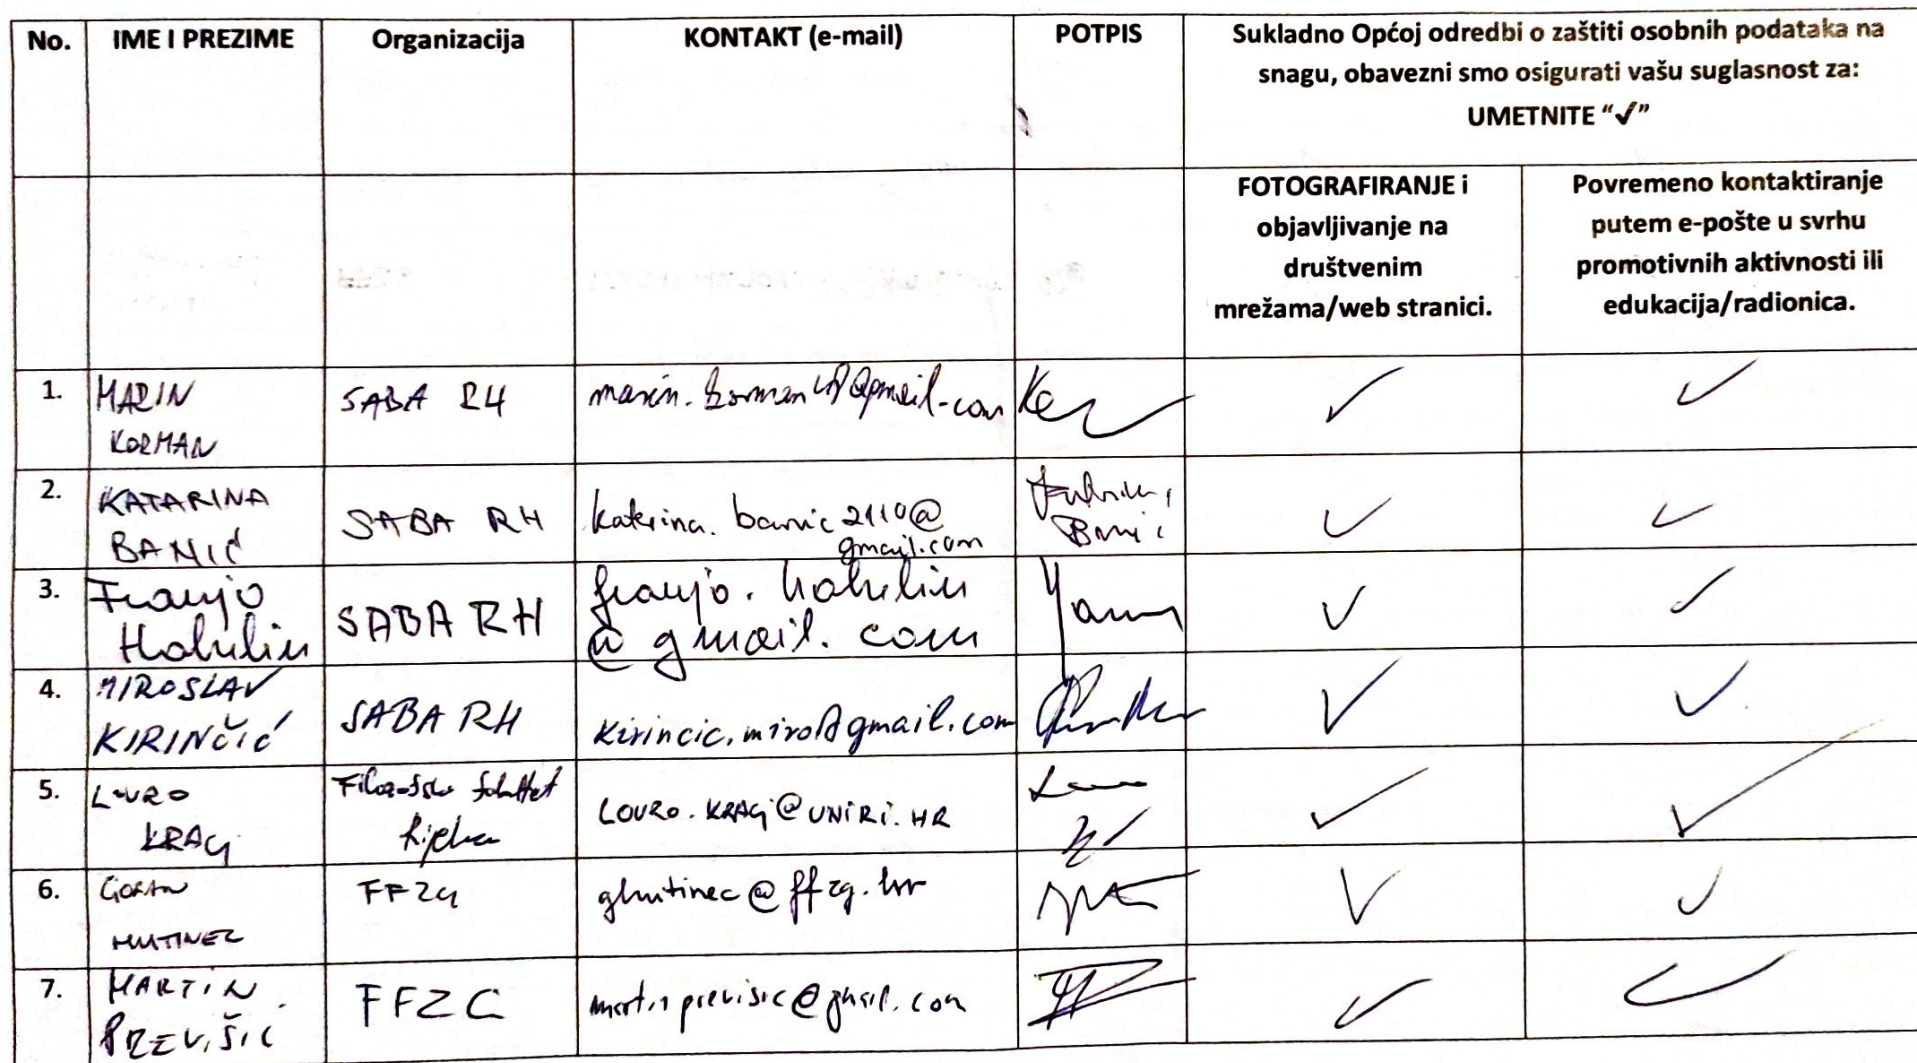 No. IME I PREZIME Organizacija KONTAKT (e-mail) POTPIS Sukladno Općoj odredbi o zaštiti osobnih podataka na
snagu, obavezni smo osigurati vašu suglasnost za:
UMETNITE “✓”
FOTOGRAFIRANJE i
objavljivanje na
društvenim
mrežama/web stranici.
Povremeno kontaktiranje
putem e-pošte u svrhu
promotivnih aktivnosti ili
edukacija/radionica.
1. MARIN SABA RH ✓ ✓
KORMAN
2. KATARINA SABA RH katarina.banic2110@ ✓ ✓
BANIĆ gmail.com
3. Franjo SABA RH franjo.habulin ✓ ✓
Habulin @gmail.com
4. MIROSLAV SABA RH kirincic.miro@gmail.com ✓ ✓
KIRINČIĆ
5. LOVRO Filozofski fakultet LOVRO.KRALJ@UNIRI.HR ✓ ✓
KRALJ Rijeka
6. GORAN FFZG ghutinec@ffzg.hr ✓ ✓
HUTINEC
7. MARTIN FFZG martinprevisic@gmail.com ✓ ✓
PREVIŠIĆ